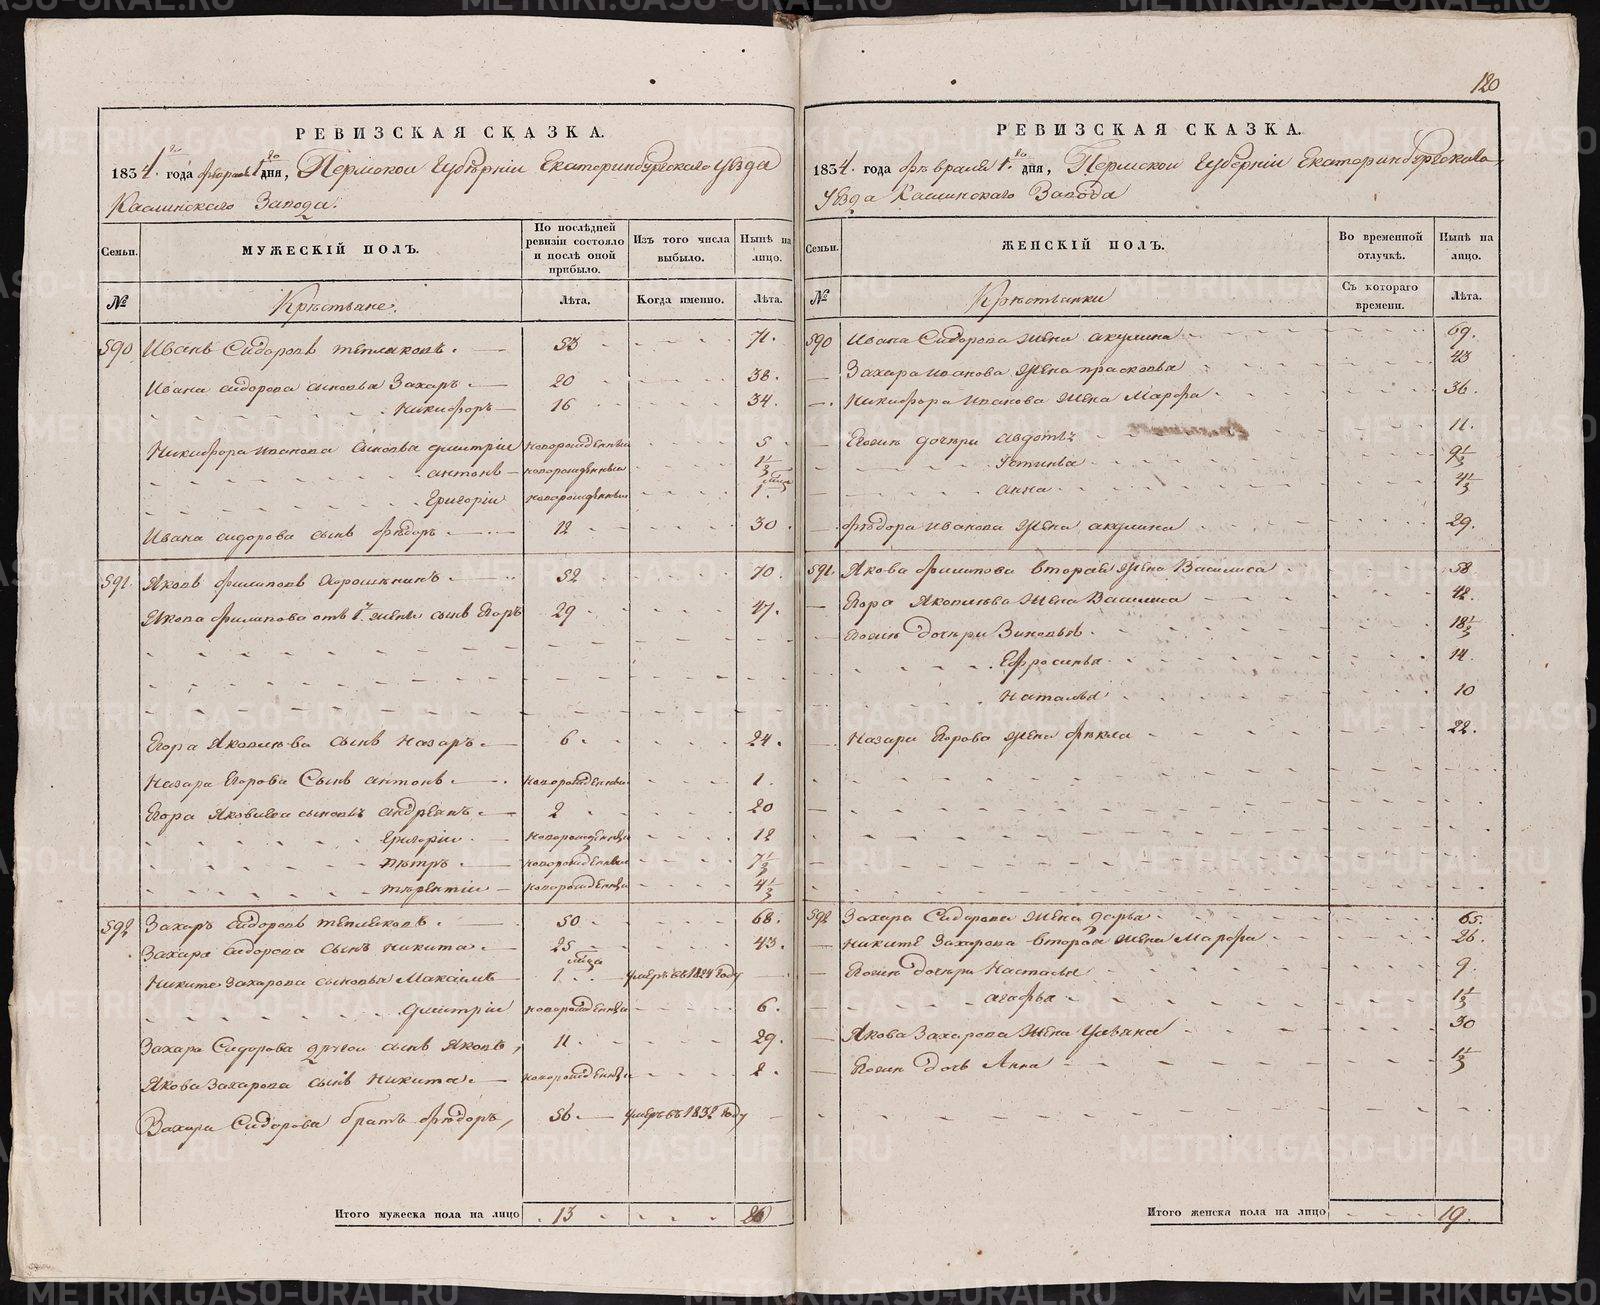 РЕВИЗСКАЯ СКАЗКА.
1834. года февраля 1го дня, Пермской Губернiи Екатеринбургскаго уѣзда
Каслинскаго Завода.
Семьи.
МУЖЕСКIЙ ПОЛЪ.
По послѣдней ревизiи состояло и послѣ оной прибыло.
Изъ того числа выбыло.
Нынѣ на лицо.
№
Крѣстьяне.
Лѣта.
Когда именно.
Лѣта.
590 Иванъ Сидоровъ тепляковъ. 53 71.
Ивана сидорова сыновья Захаръ. 20 38.
Никифоръ 16 34.
Никифора иванова сыновья дмитрiи новорожденныи 5.
антонъ новорожденныи 1 1/2
Григорiи новорожденныи мѣца 1.
Ивана сидорова сынъ фѣдоръ 12 30.
591. Яковъ филиповъ 52 70.
Якова филипова отъ 1й жены сынъ Егоръ 29 47.
Егора Яковлева сынъ назаръ. 6 24.
Назара Егорова Сынъ антонъ новорожденныи 1.
Егора Яковлева сыновья андреянъ. 2 20
Григорiи новорожденныи 12
пѣтръ новорожденныи 7 1/2
тѣрентiи новорожденныи 4 1/2
592 Захаръ сидоровъ тепляковъ. 50 68.
Захара сидорова сынъ никита. 25 43.
Никиты Захарова сыновья Максимъ мѣца 1 умеръ въ 1824 году
дмитрiи новорожденныи 6.
Захара Сидорова другои сынъ Яковъ, 11 29.
Якова Захарова сынъ никита новорожденныи 2.
Захара Сидорова братъ фѣдоръ, 56 умеръ въ 1832 году
Итого мужеска пола на лицо 13
120
РЕВИЗСКАЯ СКАЗКА.
1834. года февраля 1го дня, Пермской Губернiи Екатеринбургскаго
Уѣзда Каслинскаго Завода
Семьи.
ЖЕНСКIЙ ПОЛЪ.
Во временной отлучкѣ.
Нынѣ на лицо.
№
Крѣстьянки
Съ котораго времени.
Лѣта.
590 Ивана Сидорова жена акулина 69.
Захара иванова жена прасковья 43
Никифора иванова жена Марфа 36.
Егожъ дочѣри авдотья 11.
Устинья 9 1/2
анна 4 1/2
фѣдора иванова жена акулина 29.
591. Якова филипова вторая жена Василиса 58
Егора Яковлева жена Василиса 42.
Егожъ дочѣри Зиновья 18 1/2
Ефросинья 14.
Наталья 10
Назара Егорова жена фѣкла 22.
592 Захара Сидорова жена дарья 65.
Никиты Захарова вторая жена Марфа 26.
Егожъ дочѣри Настасья 9.
агафья 1 1/2
Якова Захарова жена Ульяна 30
Егожъ дочь Анна 1 1/2
Итого женска пола на лицо 19.
METRIKI.GASO-URAL.RU